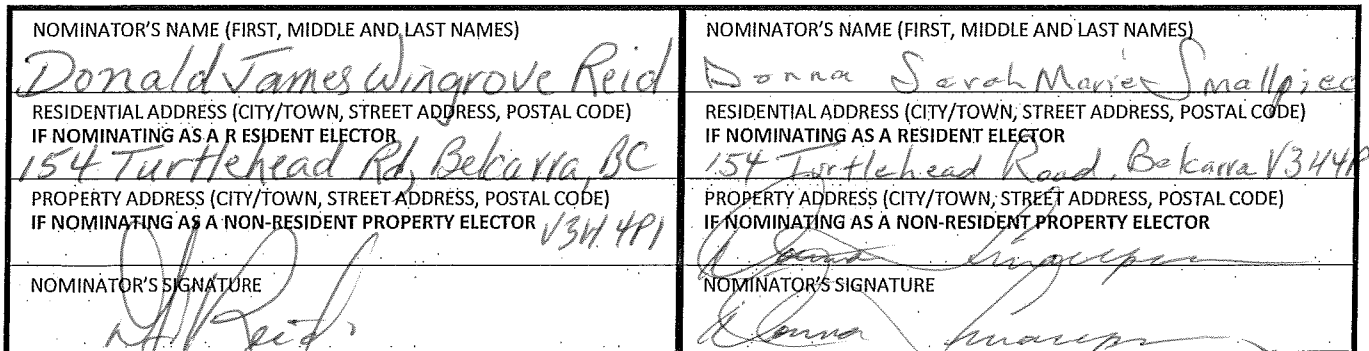 NOMINATOR'S NAME (FIRST, MIDDLE AND LAST NAMES)
Donald James Wingrove Reid
RESIDENTIAL ADDRESS (CITY/TOWN, STREET ADDRESS, POSTAL CODE)
IF NOMINATING AS A R ESIDENT ELECTOR
154 Turtlehead Rd, Belcarra, BC
PROPERTY ADDRESS (CITY/TOWN, STREET ADDRESS, POSTAL CODE)
IF NOMINATING AS A NON-RESIDENT PROPERTY ELECTOR V3H 4P1
NOMINATOR'S SIGNATURE
Reid
NOMINATOR'S NAME (FIRST, MIDDLE AND LAST NAMES)
Donna Sarah Marie Smallpiec
RESIDENTIAL ADDRESS (CITY/TOWN, STREET ADDRESS, POSTAL CODE)
IF NOMINATING AS A RESIDENT ELECTOR
154 Turtlehead Road, Belcarra V3H4P
PROPERTY ADDRESS (CITY/TOWN, STREET ADDRESS, POSTAL CODE)
IF NOMINATING AS A NON-RESIDENT PROPERTY ELECTOR
Donna
NOMINATOR'S SIGNATURE
Donna